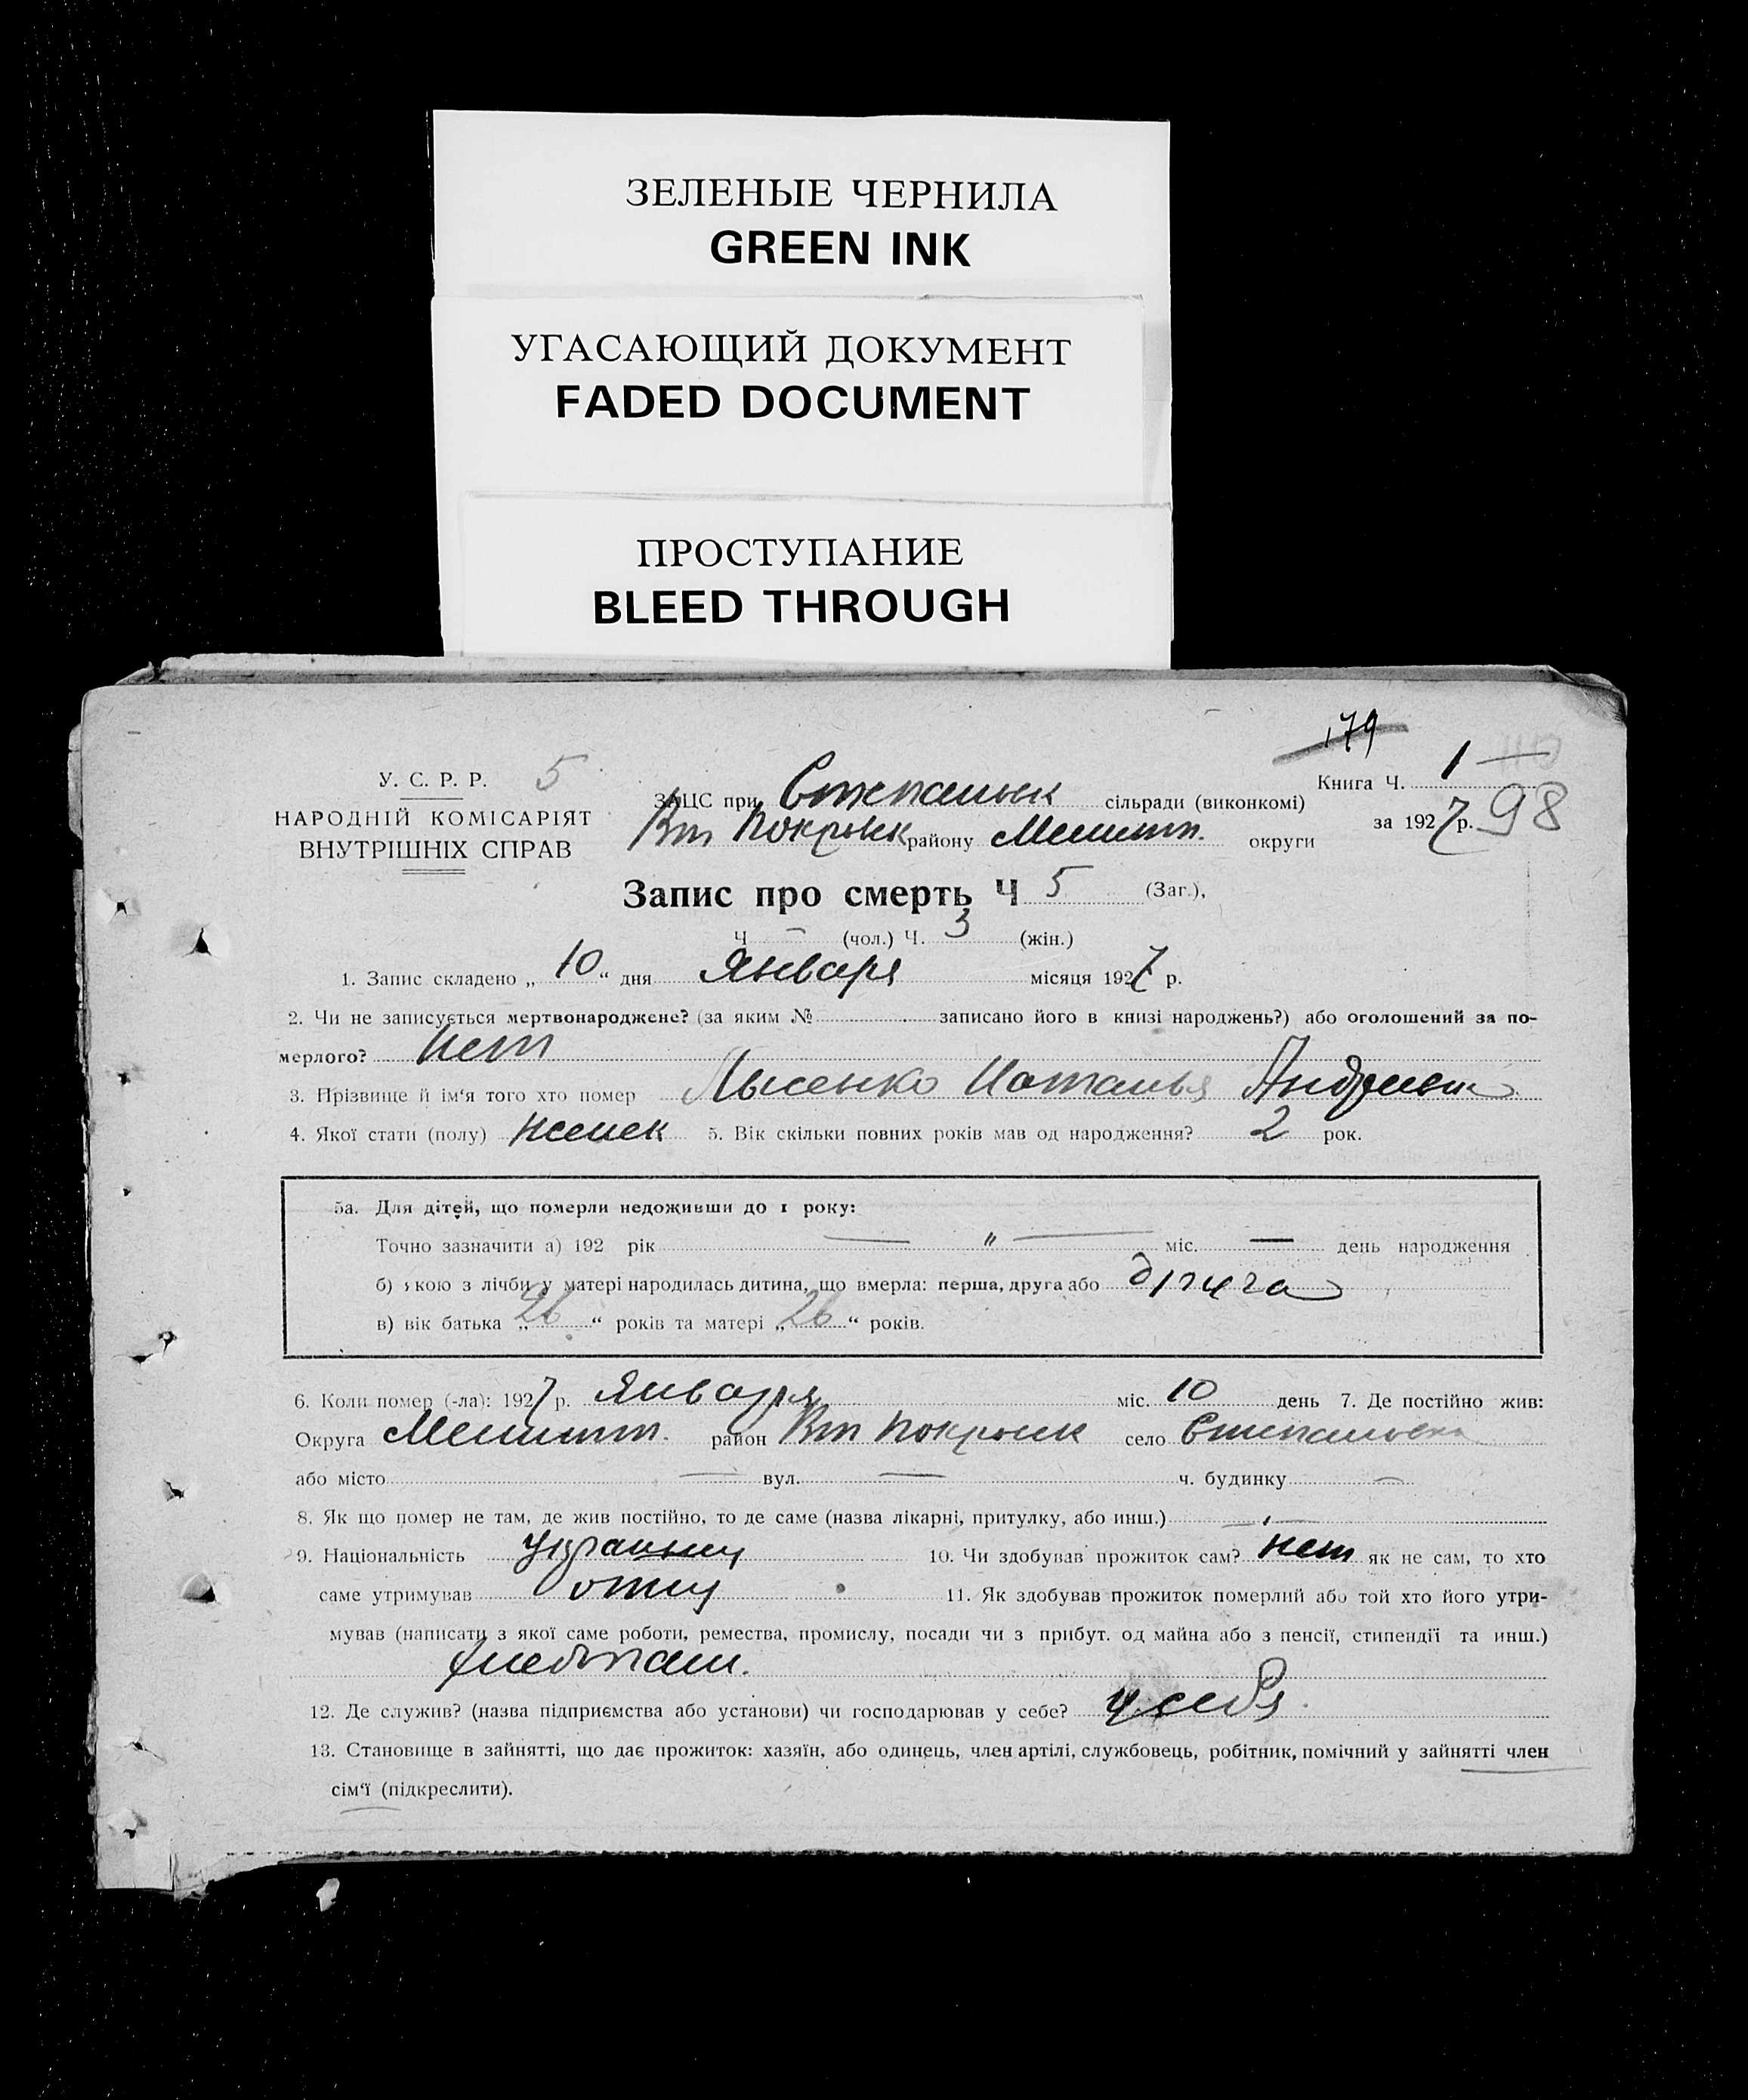 ЗЕЛЕНЫЕ ЧЕРНИЛА
GREEN INK
УГАСАЮЩИЙ ДОКУМЕНТ
FADED DOCUMENT
ПРОСТУПАНИЕ
BLEED THROUGH
179
У. С. Р. Р. 5
НАРОДНІЙ КОМІСАРІЯТ
ВНУТРІШНІХ СПРАВ
Книга Ч. 1
ЗАЦС при Степановск сільради (виконкомі)
за 1927 р. 98
Вт Покровск району Мелит. округи
Запис про смерть Ч 5 (Заг.),
Ч — (чол.) Ч. 3 (жін.)
1. Запис складено „ 10 “ дня Января місяця 1927 р.
2. Чи не записується мертвонароджене? (за яким № записано його в книзі народжень?) або оголошений за по-
мерлого? нет
3. Прізвище й ім‘я того хто помер Лысенко Наталья
4. Якої стати (полу) женск 5. Вік скільки повних років мав од народження? 2 рок.
5а. Для дітей, що померли недоживши до 1 року:
Точно зазначити а) 192 рік — " — міс. — день народження
б) якою з лічби у матері народилась дитина, що вмерла: перша, друга або друга
в) вік батька „ 26 “ років та матері „ 26 “ років.
6. Коли помер (-ла): 1927 р. Января міс. 10 день 7. Де постійно жив:
Округа Мелитп. район Вт Покровск село Степановка
або місто — вул. — ч. будинку —
8. Як що помер не там, де жив постійно, то де саме (назва лікарні, притулку, або инш.) —
9. Національність 10. Чи здобував прожиток сам? нет як не сам, то хто
саме утримував отец 11. Як здобував прожиток померлий або той хто його утри-
мував (написати з якої саме роботи, ремества, промислу, посади чи з прибут. од майна або з пенсії, стипендії та инш.)
хлебопаш.
12. Де служив? (назва підприємства або установи) чи господарював у себе? у себя
13. Становище в зайнятті, що дає прожиток: хазяїн, або одинець, член артілі, службовець, робітник, помічний у зайнятті член
сім‘ї (підкреслити).